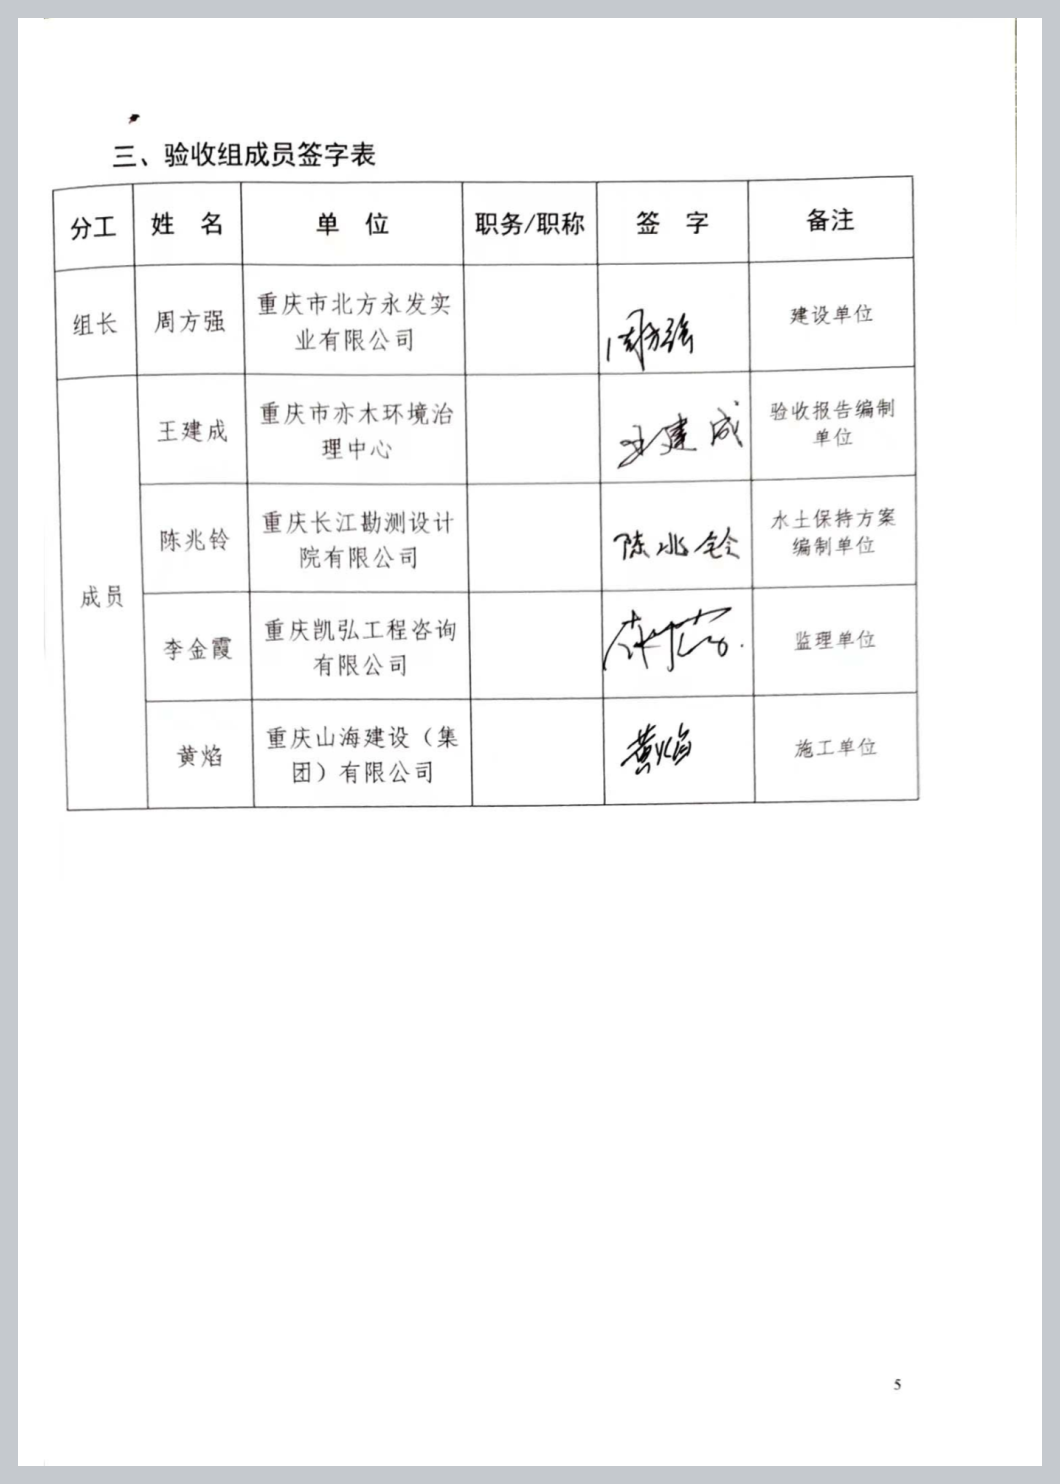 三、验收组成员签字表
分工 姓 名 单 位 职务/职称 签 字 备注
组长 周方强 重庆市北方永发实
业有限公司 周方强 建设单位
成员
王建成 重庆市亦木环境治
理中心 王建成 验收报告编制
单位
陈兆铃 重庆长江勘测设计
院有限公司 陈兆铃 水土保持方案
编制单位
李金霞 重庆凯弘工程咨询
有限公司 监理单位
黄焰 重庆山海建设（集
团）有限公司 黄焰 施工单位
5